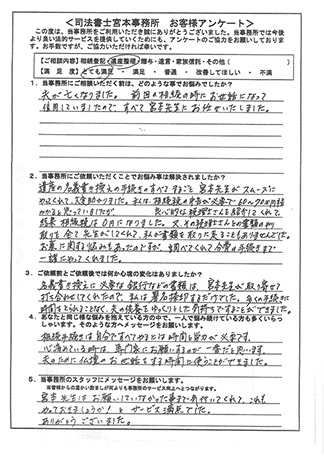 <司法書士宮本事務所 お客様アンケート>
この度は、当事務所をご利用いただき誠にありがとうございました。当事務所では今後
より良い法的サービスを提供していくためにも、アンケートのご協力をお願いしております。
お手数ですが、ご協力いただければ幸いです。
【ご相談内容】相続登記・遺産整理・贈与・遺言・家族信託・その他( )
【満足度】とても満足・満足・普通・改善してほしい・不満
1. 当事務所にご相談いただく前は、どのようなお悩みでしたか?
夫が亡くなりました。 前回の相続の時にお世話になって
信用していましたので すべて宮本先生にお任せいたしました。
2. 当事務所にご依頼いただくことでお悩みは解決されましたか?
遺産の名義書の換えの手続きのすべてを 宮本先生がスムースに
やってくれて大変助かりました。
かかると思っていましたが 良心的な税理士さんを紹介してくれて
結果相続税は0円になりました。
取りも全て先生がしてくれて、私が書類を取りに走ることもありませんでした。
一緒にやってくれました。
3. ご依頼前とご依頼後では何か心境の変化はありましたか?
名義書の換えに必要な銀行などの書類は、宮本先生が取り寄せて
打ち合わせしてくれたので、私は署名捺印するだけでした。
4. あなたと同じ様な悩みを抱えている方の中で、一人で悩み続けている方も多くいらっ
しゃいます。そのような方へメッセージをお願いします。
相続手続きは自分ですべてやるには時間と労力が必要です。
専門家にお願いするのが一番だと思います。
5. 当事務所のスタッフにメッセージをお願いします。
宮本先生はお願いしていなかった事まで気付いてくれて、これも
やっておきましょうか!とサービス満点でした。
ありがとうございました。